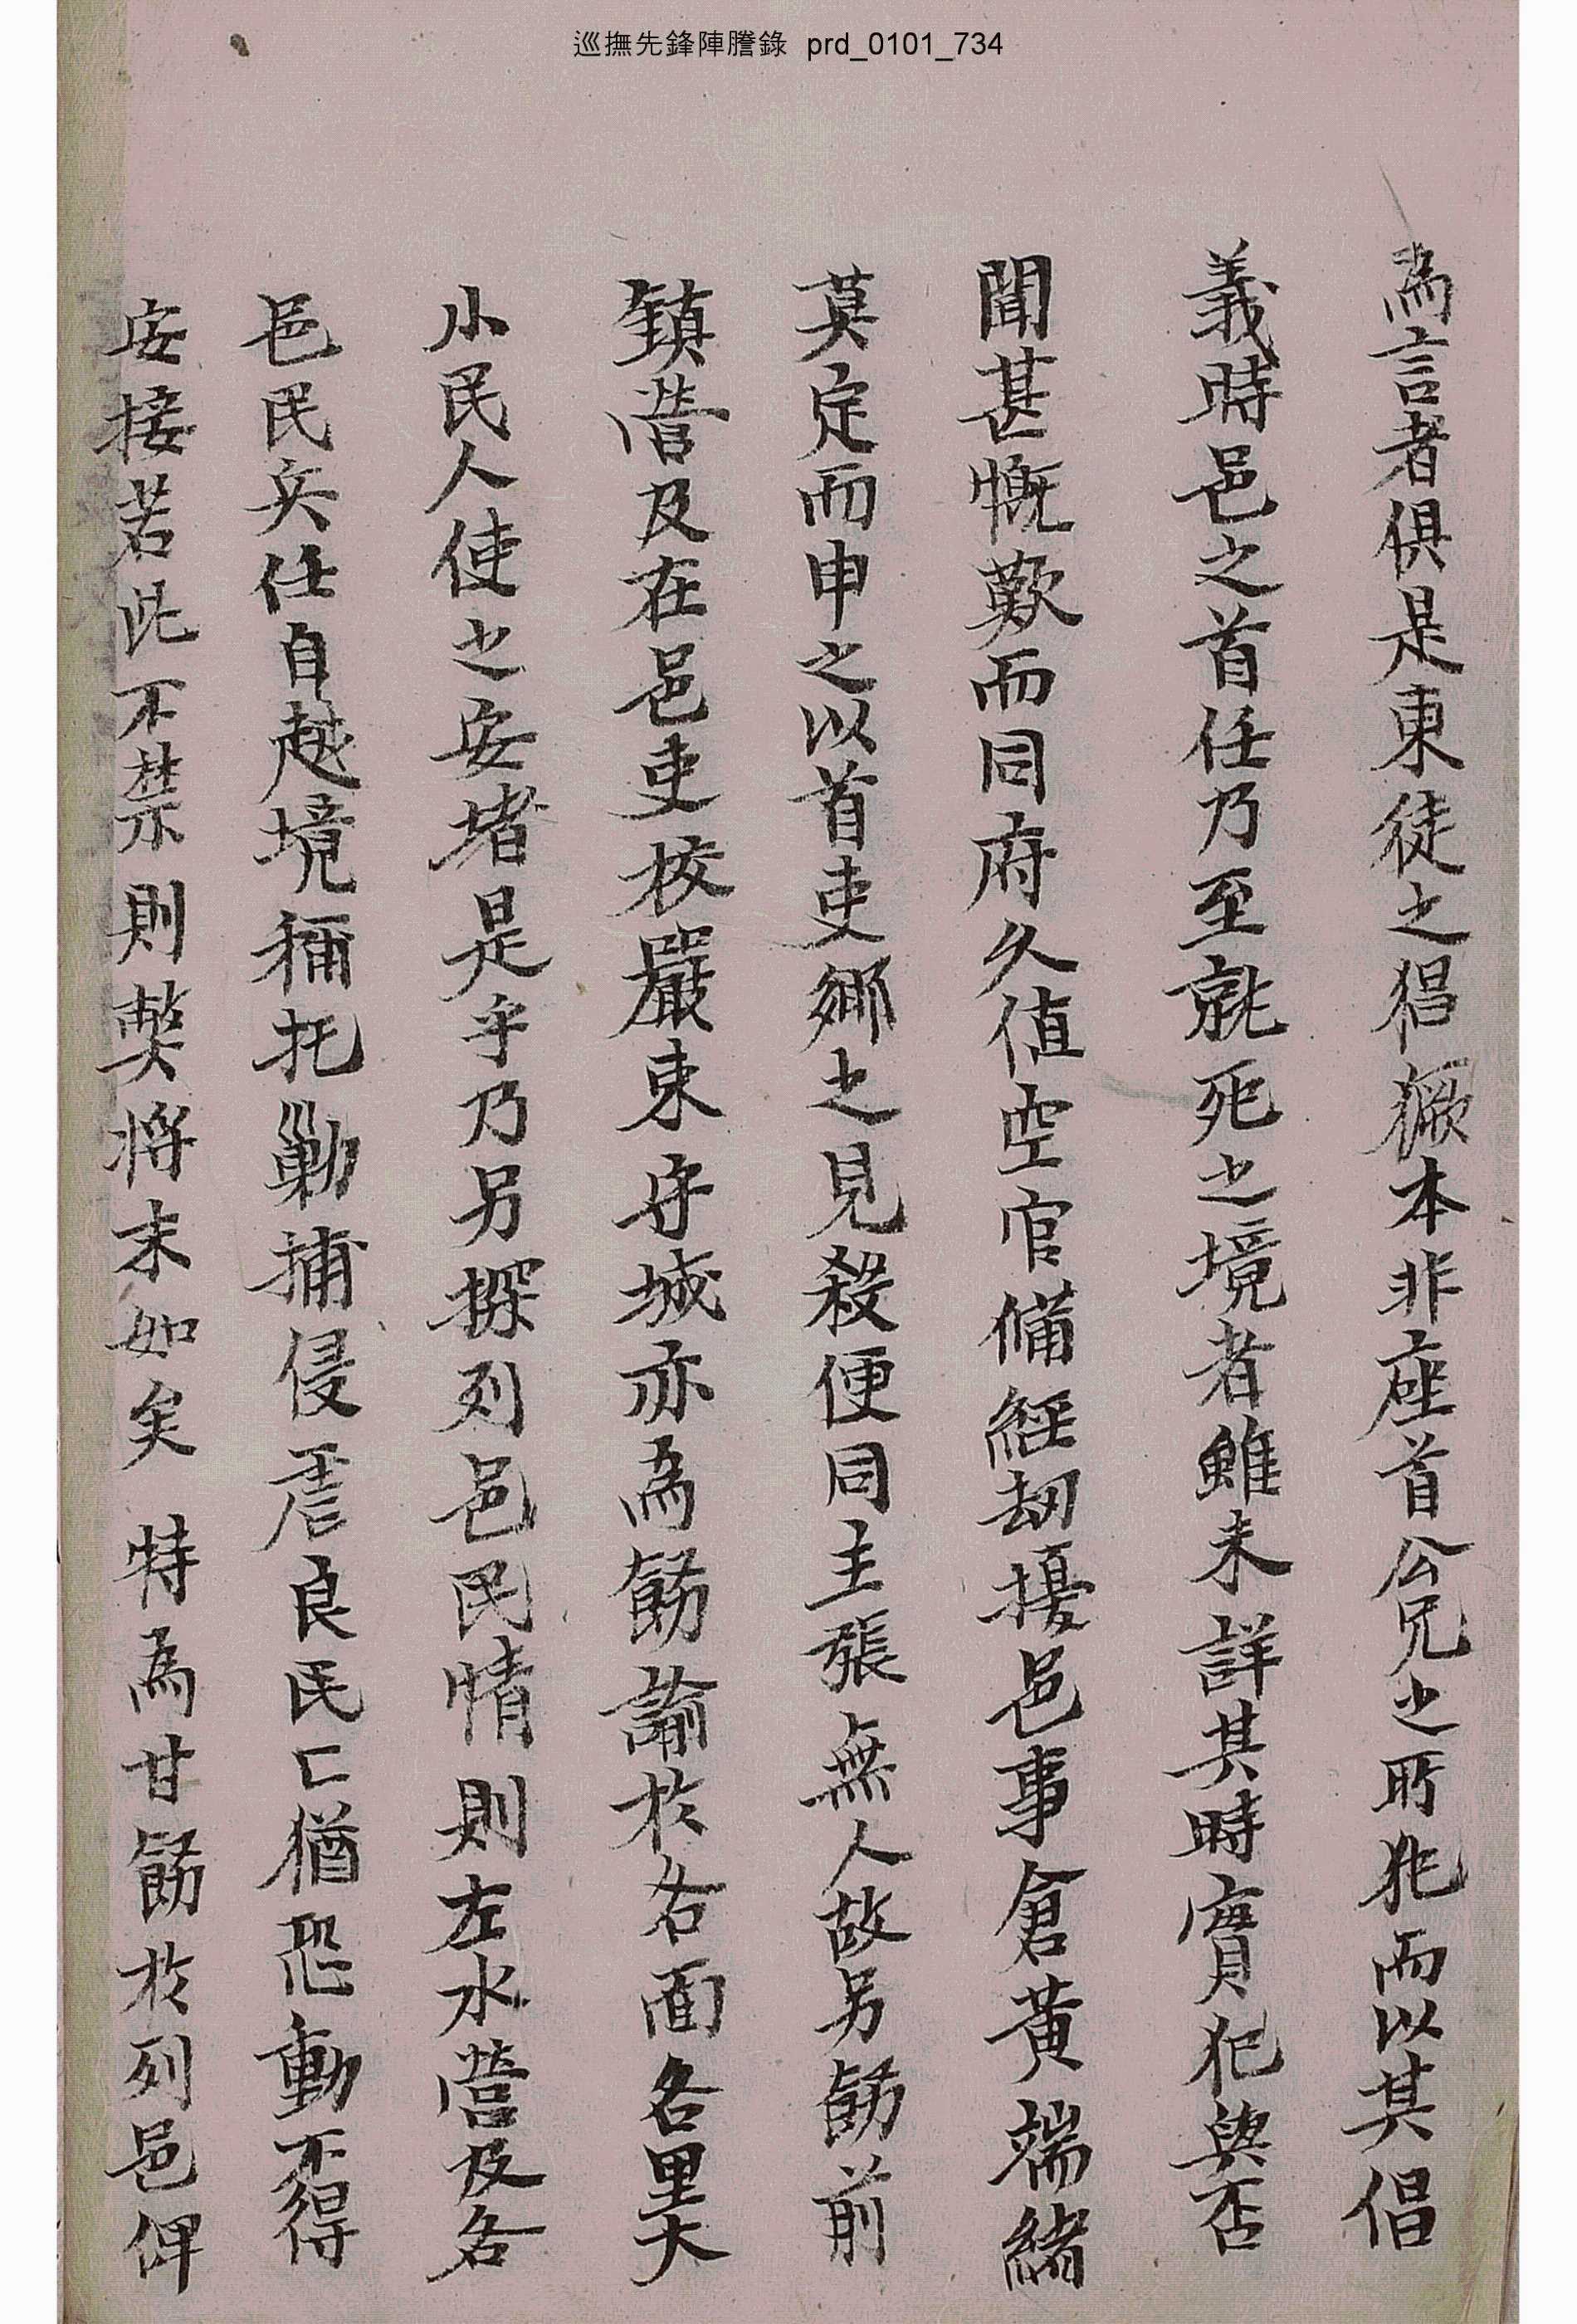 巡撫先鋒陣謄錄 prd_0101_734
為言者俱是東徒之猖獗本非座首公兄之所犯而以其倡
義時邑之首任乃至就死之境者雖未詳其時實犯與否
聞甚慨歎而同府久值空官備經劫擾邑事倉黃端緒
莫定而申之以首吏鄉之見殺便同主張無人故另飭前
鎮營及在邑吏校嚴束守城亦為飭諭於各面各里大
小民人使之安堵是乎乃另探列邑民情則左水營及各
邑民兵任自越境稱托剿捕侵虐良民匕猶恐動不得
安接若此不禁則獘將末如矣 特為甘飭於列邑俾